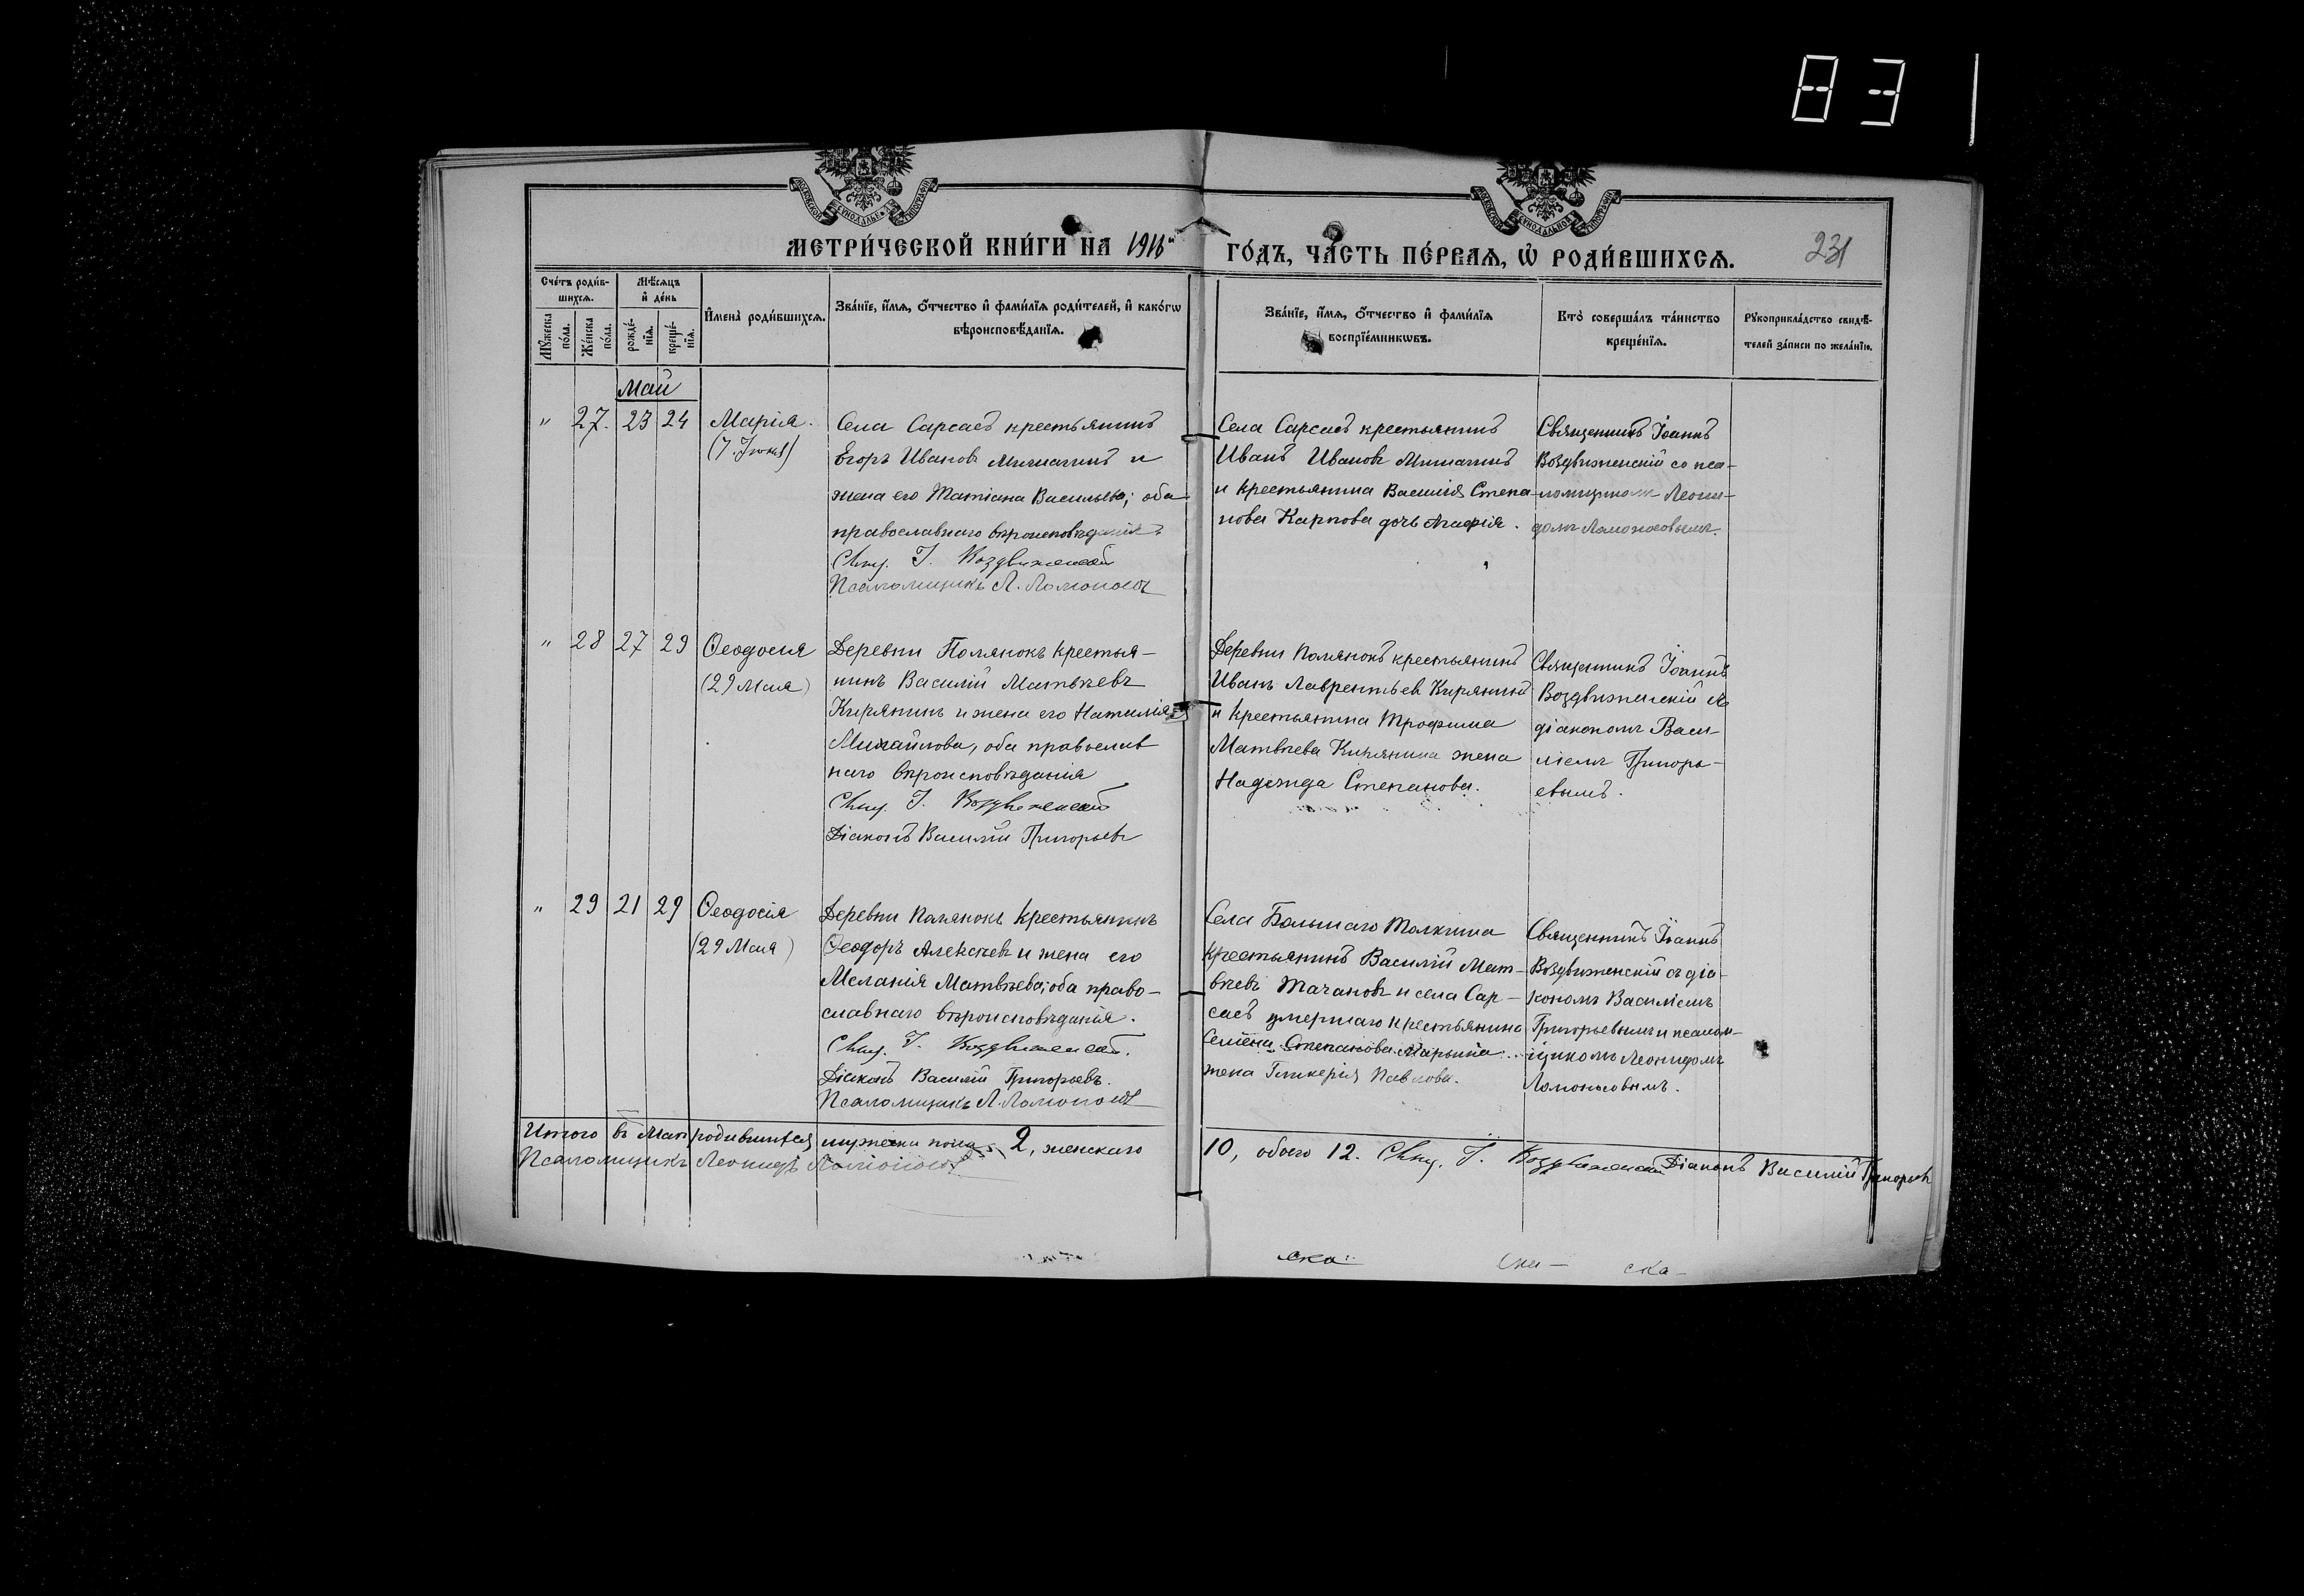 83
МОСКОВСКОЙ СѴНОДАЛЬНОЙ ТИПОГРАФІИ
МОСКОВСКОЙ СѴНОДАЛЬНОЙ ТИПОГРАФІИ
МЕТРИ́ЧЕСКОЙ КНИ́ГИ НА 1916й
ГО́ДЪ, ЧА́СТЬ ПЕ́РВАЯ, Ѡ҆ РОДИ́ВШИХСЯ.
231
Сче́тъ роди́в-
шихся.
Мѣ́сяцъ
и҆ де́нь
Му́жеска по́ла.
Же́нска по́ла.
рожде́-
нїя.
креще́-
нїя.
И҆мена̀ роди́вшихся.
Зва́нїе, и҆́мя, ѻ҆́тчество и҆ фами́лїя роди́телей, и҆ како́гѡ
вѣроисповѣ́данїя.
Зва́нїе, и҆́мя, ѻ҆́тчество и҆ фами́лїя
воспрїе́мникѡвъ.
Кто̀ соверша́лъ та́инство
креще́нїя.
Рꙋкоприкла́дство свидѣ́-
телей за́писи по жела́нїю.
Май
" 27. 23 24 Марія.
(7. Іюня)
Села Сарсасъ крестьянинъ
Егоръ Ивановъ Мишагинъ и
жена его Татіана Васильева; оба
православнаго вѣроисповѣданія.
Свящ. І. Воздвиженскій
Псаломщикъ Л. Ломоносовъ
Села Сарсасъ крестьянинъ
Иванъ Ивановъ Мишагинъ
и крестьянина Василія Степа-
нова Карпова дочь Агафія.
Священникъ Іоаннъ
Воздвиженскій со пса-
ломщикомъ Леони-
домъ Ломоносовымъ.
" 28 27 29 Ѳеодосія
(29 Мая)
Деревни Полянокъ крестья-
нинъ Василій Матвѣевъ
Кирянинъ и жена его Наталія
Михайлова, оба православ
наго вѣроисповѣданія
Свящ. І. Воздвиженскій
Діаконъ Василій Григорьевъ
Деревни Полянокъ крестьянинъ
Иванъ Лаврентьевъ Кирянинъ
и крестьянина Трофима
Матвѣева Кирянина жена
Надежда Степанова.
Священникъ Іоаннъ
Воздвиженскій съ
діакономъ Васи-
ліемъ Григорь-
евымъ.
" 29 21 29 Ѳеодосія
(29 Мая)
Деревни Полянокъ крестьянинъ
Ѳеодоръ Алексѣевъ и жена его
Меланія Матвѣева; оба право-
славнаго вѣроисповѣданія.
Свящ. І. Воздвиженскій.
Діаконъ Василій Григорьевъ.
Псаломщикъ Л. Ломоносовъ
Села Большаго Толкина
крестьянинъ Василій Мат-
вѣевъ Тачановъ и села Сар-
сасъ умершаго крестьянина
Семена Степанова Марьина
жена Гликерія Павлова.
Священникъ Іоаннъ
Воздвиженскій съ діа-
кономъ Василіемъ
Григорьевымъ и псалом-
щикомъ Леонидомъ
Ломоносовымъ.
Итого въ Маѣ родившихся мужеска пола 2, женскаго
10, обоего 12. Свящ. І. Воздвиженскій Діаконъ Василій Григорьевъ
Псаломщикъ Леонидъ Ломоносовъ
ска
ска-